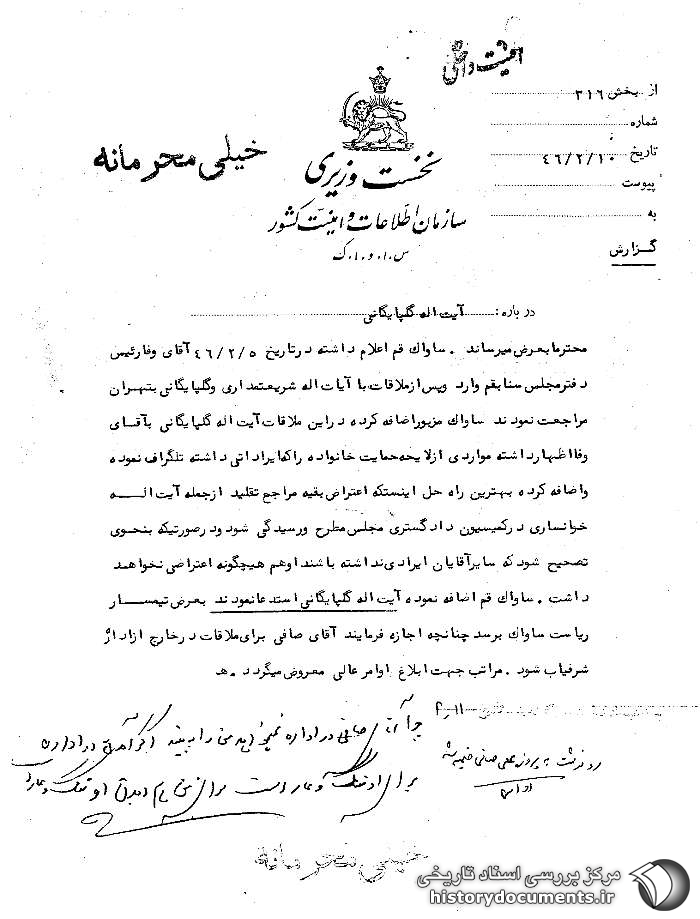 امنیت داخلی
از بخش ۳۱۶
شماره
تاریخ ۴۶/۲/۱۰
پیوست
به
گزارش
خیلی محرمانه
نخست وزیری
سازمان اطلاعات و امنیت کشور
س.ا.و.ا.ک
درباره: آیت اله گلپایگانی
محترما بعرض میرساند . ساواك قم اعلام داشته درتاریخ ۴۶/۲/۵ آقای وفا رئیس
دفتر مجلس سنا بقم وارد وپس ازملاقات با آیات اله شریعتمداری وگلپایگانی بتهران
مراجعت نمودند ساواك مزبور اضافه کرده دراین ملاقات آیت اله گلپایگانی بآقای
وفا اظهارداشته مواردی ازلایحه حمایت خانواده راکه ایراداتی داشته تلگراف نموده
واضافه کرده بهترین راه حل اینستکه اعتراض بقیه مراجع تقلید ازجمله آیت اله
خوانساری درکمیسیون دادگستری مجلس مطرح ورسیدگی شود ودرصورتیکه بنحوی
تصحیح شود که سایرآقایان ایرادی نداشته باشند اوهم هیچگونه اعتراضی نخواهد
داشت . ساواك قم اضافه نموده آیت اله گلپایگانی استدعا نمودند بعرض تیمسار
ریاست ساواك برسد چنانچه اجازه فرمایند آقای صافی برای ملاقات درخارج ازاداره
شرفیاب شود . مراتب جهت ابلاغ اوامرعالی معروض میگردد . هـ
چرا آقای صافی در اداره نمیخواهد من را ببیند اگر آمدن در اداره
برای او ننگ و عار است برای من هم دیدن او ننگ و عار
رونوشت به پرونده صافی ضمیمه شد
خیلی محرمانه
مرکز بررسی اسناد تاریخی
historydocuments.ir